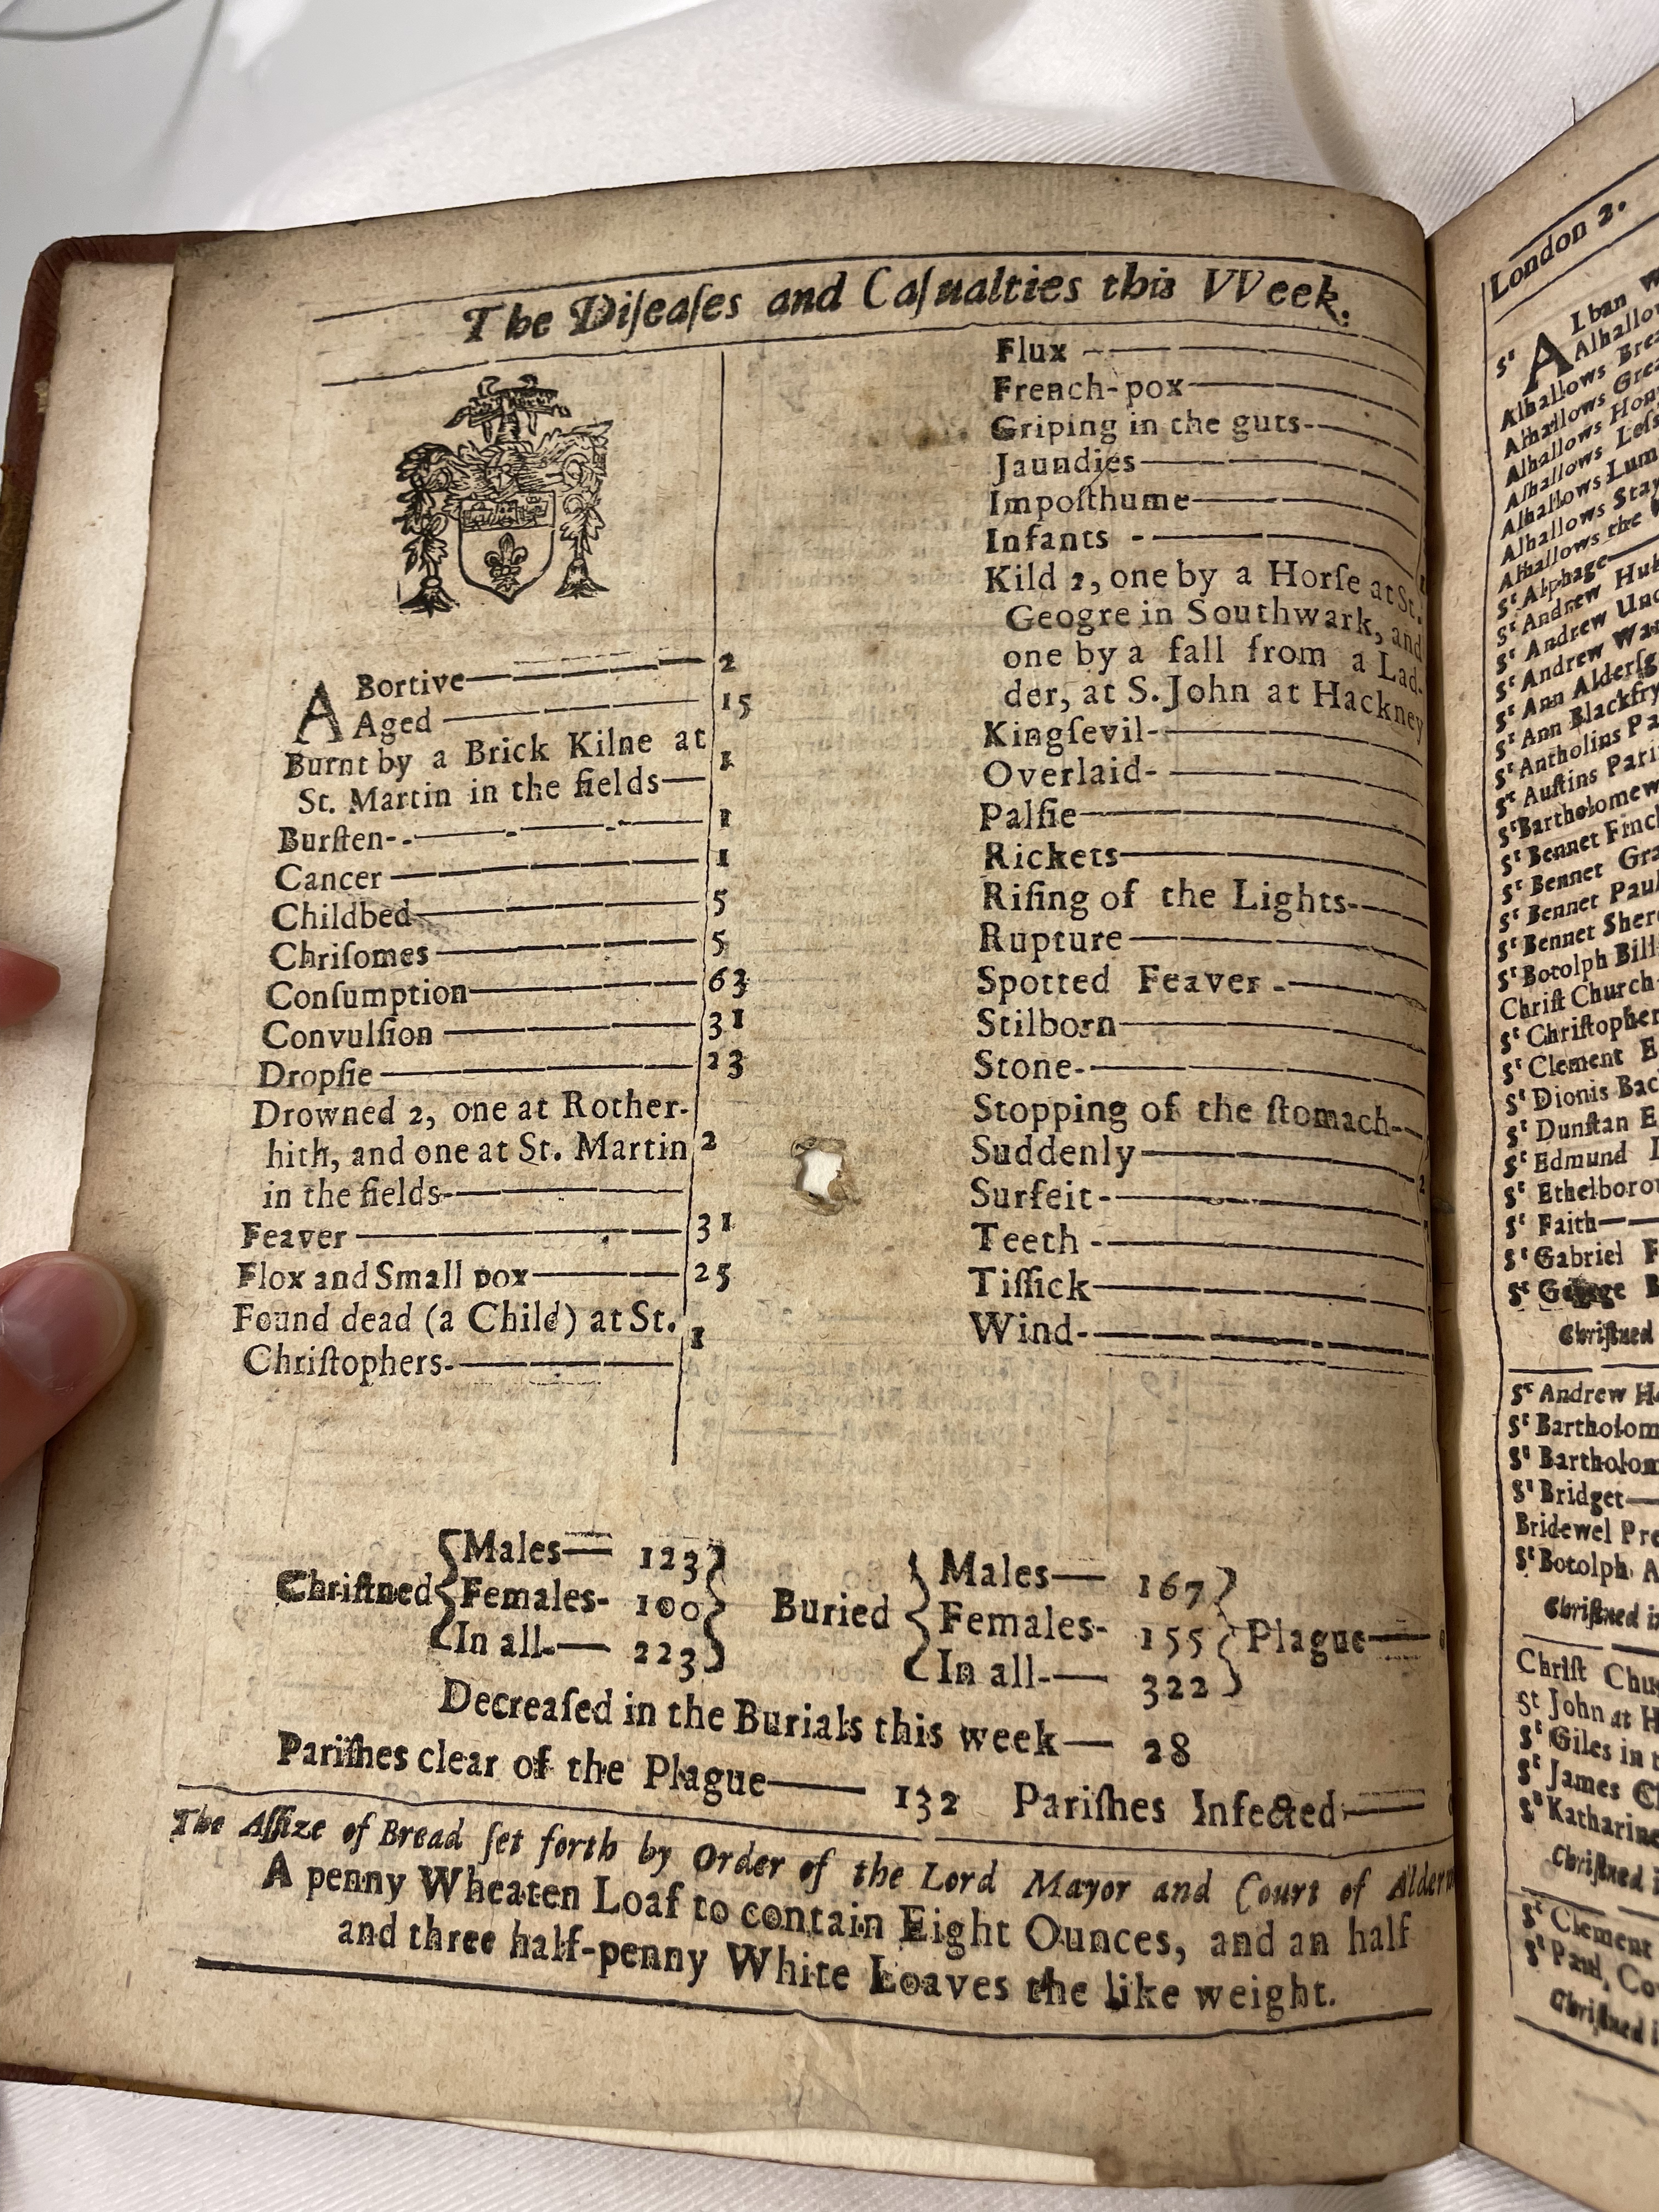 The Diſeaſes and Caſualties this VVeek.
ABortive 2
Aged 15
Burnt by a Brick Kilne at
St. Martin in the fields 1
Burſten 1
Cancer 1
Childbed 5
Chriſomes 5
Conſumption 63
Convulſion 31
Dropſie 23
Drowned 2, one at Rother-
hith, and one at St. Martin 2
in the fields
Feaver 31
Flox and Small pox 25
Found dead (a Child) at St. 1
Chriſtophers
Flux
French-pox
Griping in the guts
Jaundies
Impoſthume
Infants
Kild 2, one by a Horſe at St.
Geogre in Southwark, and
one by a fall from a Lad-
der, at S. John at Hackney
Kingſevil
Overlaid
Palſie
Rickets
Riſing of the Lights
Rupture
Spotted Feaver
Stilborn
Stone
Stopping of the ſtomach
Suddenly
Surfeit
Teeth
Tiſſick
Wind
Chriſtned { Males 123 Females 100 In all 223 } Buried { Males 167 Females 155 In all 322 } Plague
Decreaſed in the Burials this week 28
Pariſhes clear of the Plague 132 Pariſhes Infected
The Aſſize of Bread ſet forth by Order of the Lord Mayor and Court of
A penny Wheaten Loaf to contain Eight Ounces, and an half
and three half-penny White Loaves the like weight.
London 2.
Sᵗ Alban
Alhallows
Alhallows
Alhallows
Alhallows
Alhallows
Alhallows
Alhallows
Alhallows the
Sᵗ Alphage
Sᵗ Andrew
Sᵗ Andrew
Sᵗ Andrew
Sᵗ Ann
Sᵗ Ann
Sᵗ Antholins
Sᵗ Auſtins
Sᵗ Bartholomew
Sᵗ Bennet
Sᵗ Bennet
Sᵗ Bennet
Sᵗ Bennet
Sᵗ Botolph
Chriſt Church
Sᵗ Chriſtopher
Sᵗ Clement
Sᵗ Dionis
Sᵗ Dunſtan
Sᵗ Edmund
Sᵗ
Sᵗ Faith
Sᵗ Gabriel
Sᵗ George
Chriſtned
Sᵗ Andrew
Sᵗ
Sᵗ
Sᵗ Bridget
Bridewel
Sᵗ Botolph
Chriſtned
Chriſt
St John at
Sᵗ Giles in
Sᵗ James
Sᵗ
Chriſtned
Sᵗ Clement
Sᵗ Paul,
Chriſtned